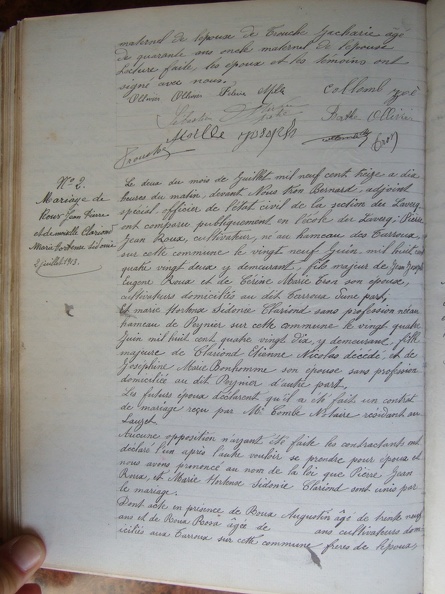 maternel de l'épouse de Trouche Zacharie âgé
de quarante ans oncle maternel de l'épouse
Lecture faite, les époux et les témoins ont
signé avec nous.
Collomb
Ollivier
N° 2.
Mariage de
Roux Jean Pierre
et demoiselle Clariond
Marie Hortense Sidonie
2 juillet 1913.
Le deux du mois de Juillet mil neuf cent treize à dix
heures du matin, devant Nous Bernard, adjoint
spécial officier de l'état civil de la section du
ont comparu publiquement en l'école du Pierre
Jean Roux, cultivateur, né au hameau des
sur cette commune le vingt neuf Juin mil huit cent
quatre vingt deux y demeurant, fils majeur de Jean Joseph
Eugène Roux et de Marie son épouse,
cultivateurs domiciliés au dit d'une part,
Et Marie Hortense Sidonie Clariond sans profession née au
hameau de sur cette commune le vingt quatre
Juin mil huit cent quatre vingt dix, y demeurant, fille
majeure de Clariond Etienne Nicolas décédé, et de
Joséphine Marie Bonhomme son épouse sans profession
domiciliée au dit d'autre part.
Les futurs époux déclarent qu'il a été fait un contrat
de mariage reçu par Me notaire résidant au
Lauzet
Aucune opposition n'ayant été faite les contractants ont
déclaré l'un après l'autre vouloir se prendre pour époux et
nous avons prononcé au nom de la loi que Pierre Jean
Roux, et Marie Hortense Sidonie Clariond sont unis par
le mariage.
Dont acte en présence de Roux Augustin âgé de trente neuf
ans et de Roux Rosa âgée de ans cultivateurs domi
ciliés aux sur cette commune frères de l'époux,